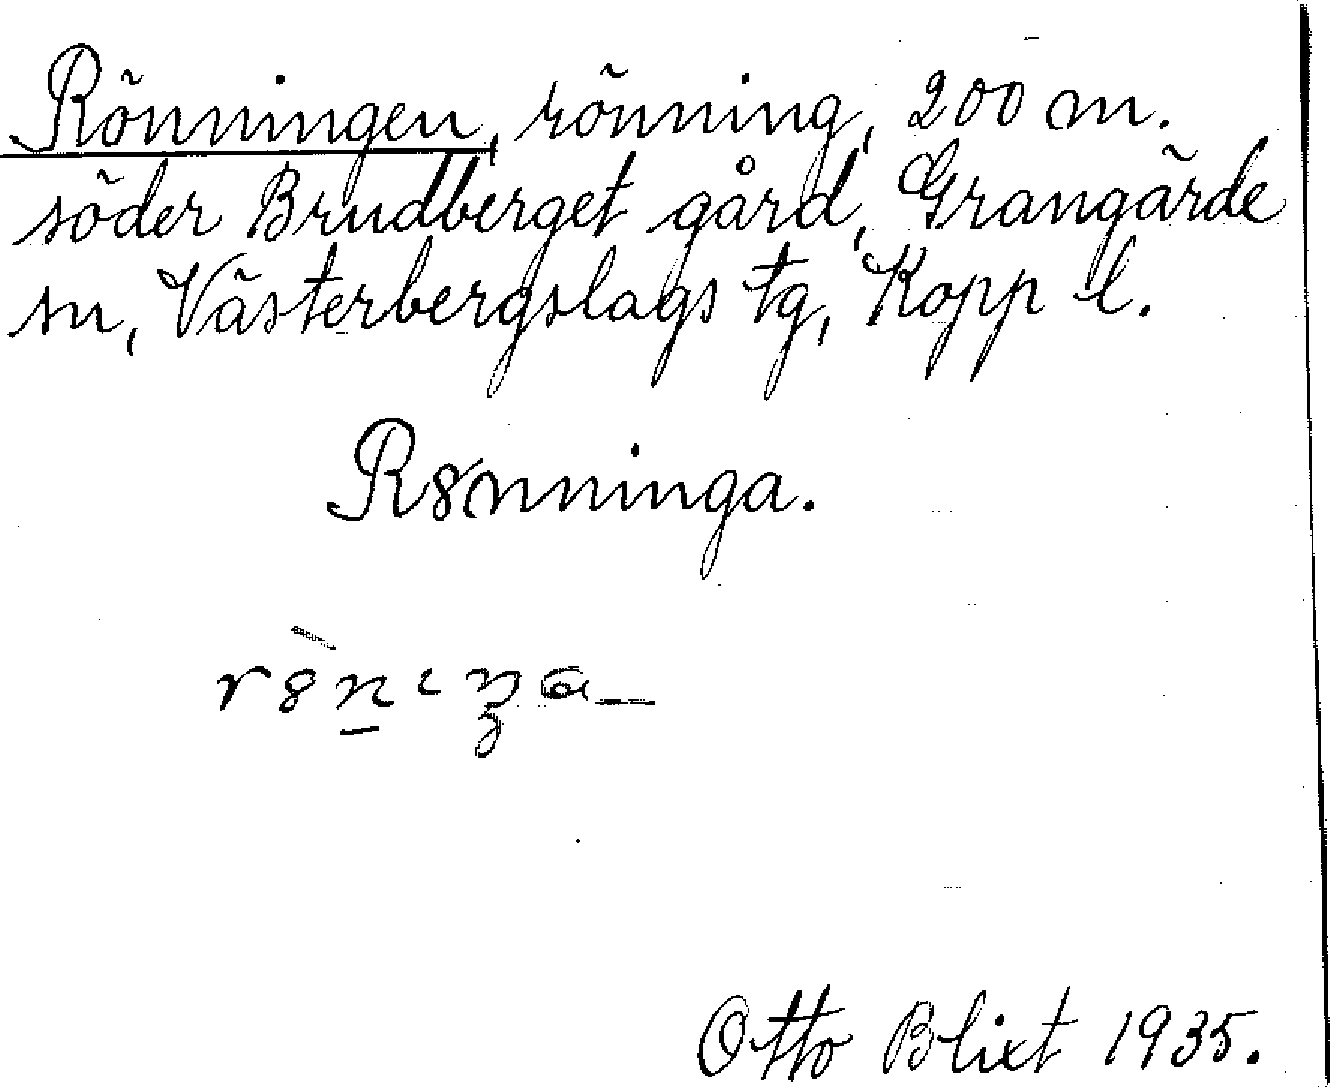 Rönningen, rönning, 200 m.
söder Brudberget gård, Grangärde
sn, Västerbergslags tg, Kopp l.
R8nninga.
r8̀n̲ıŋa
Otto Blixt 1935.